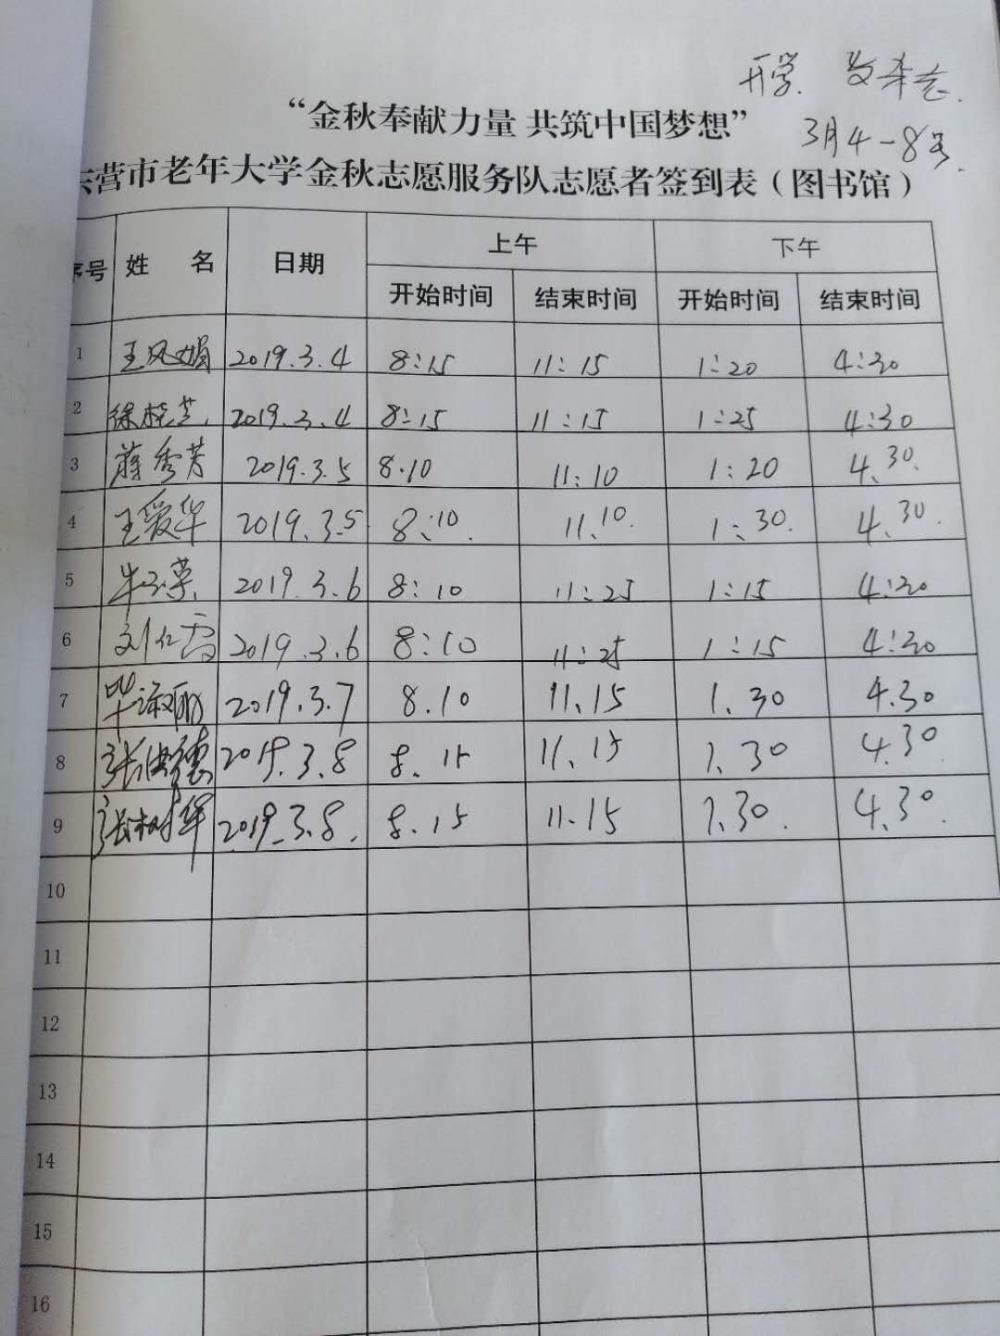 开学 发杂志.
3月4-8号.
“金秋奉献力量 共筑中国梦想”
东营市老年大学金秋志愿服务队志愿者签到表(图书馆)
序号 姓 名 日期 上午 下午
开始时间 结束时间 开始时间 结束时间
1 王凤娟 2019.3.4 8:15 11:15 1:20 4:30
2 徐桂芝 2019.3.4 8:15 11:15 1:25 4:30
3 蒋秀芳 2019.3.5 8.10 11:10 1:20 4.30.
4 王爱华 2019.3.5 8:10. 11.10. 1:30. 4.30.
5 2019.3.6 8:10 11:25 1:15 4:30
6 刘仁霞 2019.3.6 8:10 11:25 1:15 4:30
7 毕淑丽 2019.3.7 8.10 11.15 1.30 4.30
8 2019.3.8 8.15 11.15 1.30 4.30
9 张树军 2019.3.8. 8.15 11.15 1.30. 4.30.
10
11
12
13
14
15
16